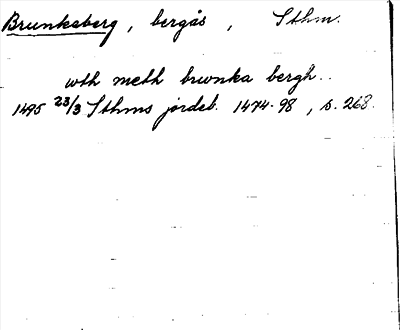 Brunkeberg, bergås, Sthm.
wth meth brunka bergh..
1495 23/3 Sthms jordeb. 1474-98, s. 268.